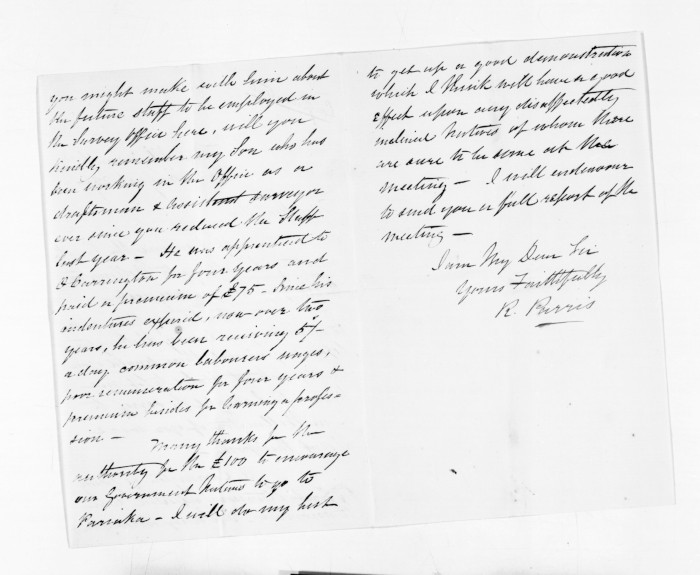 you might make with him about
the future staff to be employed in
the Survey Office here, will you
kindly remember my Son who has
been working in the Office as a
draftsman & assistant surveyor
ever since you reduced the Staff
last year — He was apprenticed to
O Carrington for four years and
paid a premium of £75 - Since his
indentures expired, now over two
years, he has been receiving 5/-
a day common labourers wages,
poor remuneration for four years &
premium besides for learning a profes-
sion —
Many thanks for the
authority for the £100 to encourage
our Government Natives to go to
I will do my best
to get up a good demonstration
which I think will have a good
effect upon any disaffectedly
inclined Natives of whom there
are sure to be some at the
meeting — I will endeavour
to send you a full report of the
meeting —
I am My Dear Sir
Yours Faithfully
R. Parris